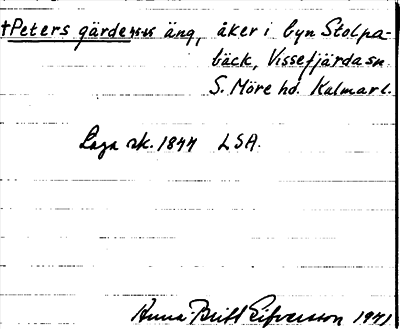 †Peters gärde äng, åker i byn Stolpa-
bäck, Vissefjärda sn
S. Möre hd. Kalmar l.
Laga sk. 1844 LSA.
Anna-Britt Eifversson 1941